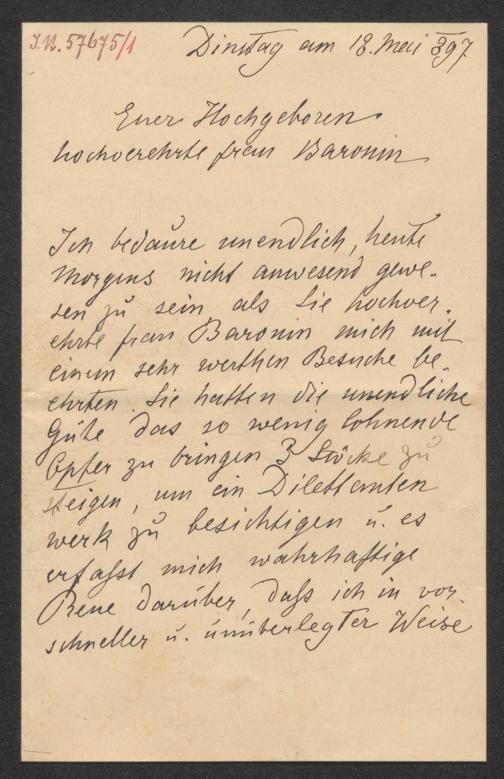 I.N. 57675/1
Dinstag am 18. Mai 897
Euer Hochgeboren
hochverehrte frau Baronin
Ich bedaure unendlich, heute
Morgens nicht anwesend gewe-
sen zu sein als Sie hochver-
ehrte frau Baronin mich mit
einem sehr werthen Besuche be-
ehrten. Sie hatten die unendliche
Güte das so wenig lohnende
Opfer zu bringen 3 Stöcke zu
steigen, um ein Dilettanten
werk zu besichtigen u. es
erfasst mich wahrhaftige
Reue darüber, dass ich in vor-
schneller u. unüberlegter Weise